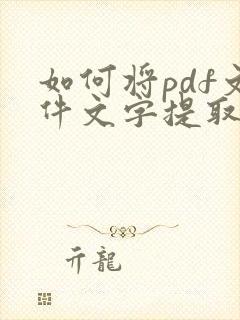 如何将pdf文
件文字提取
亓龍